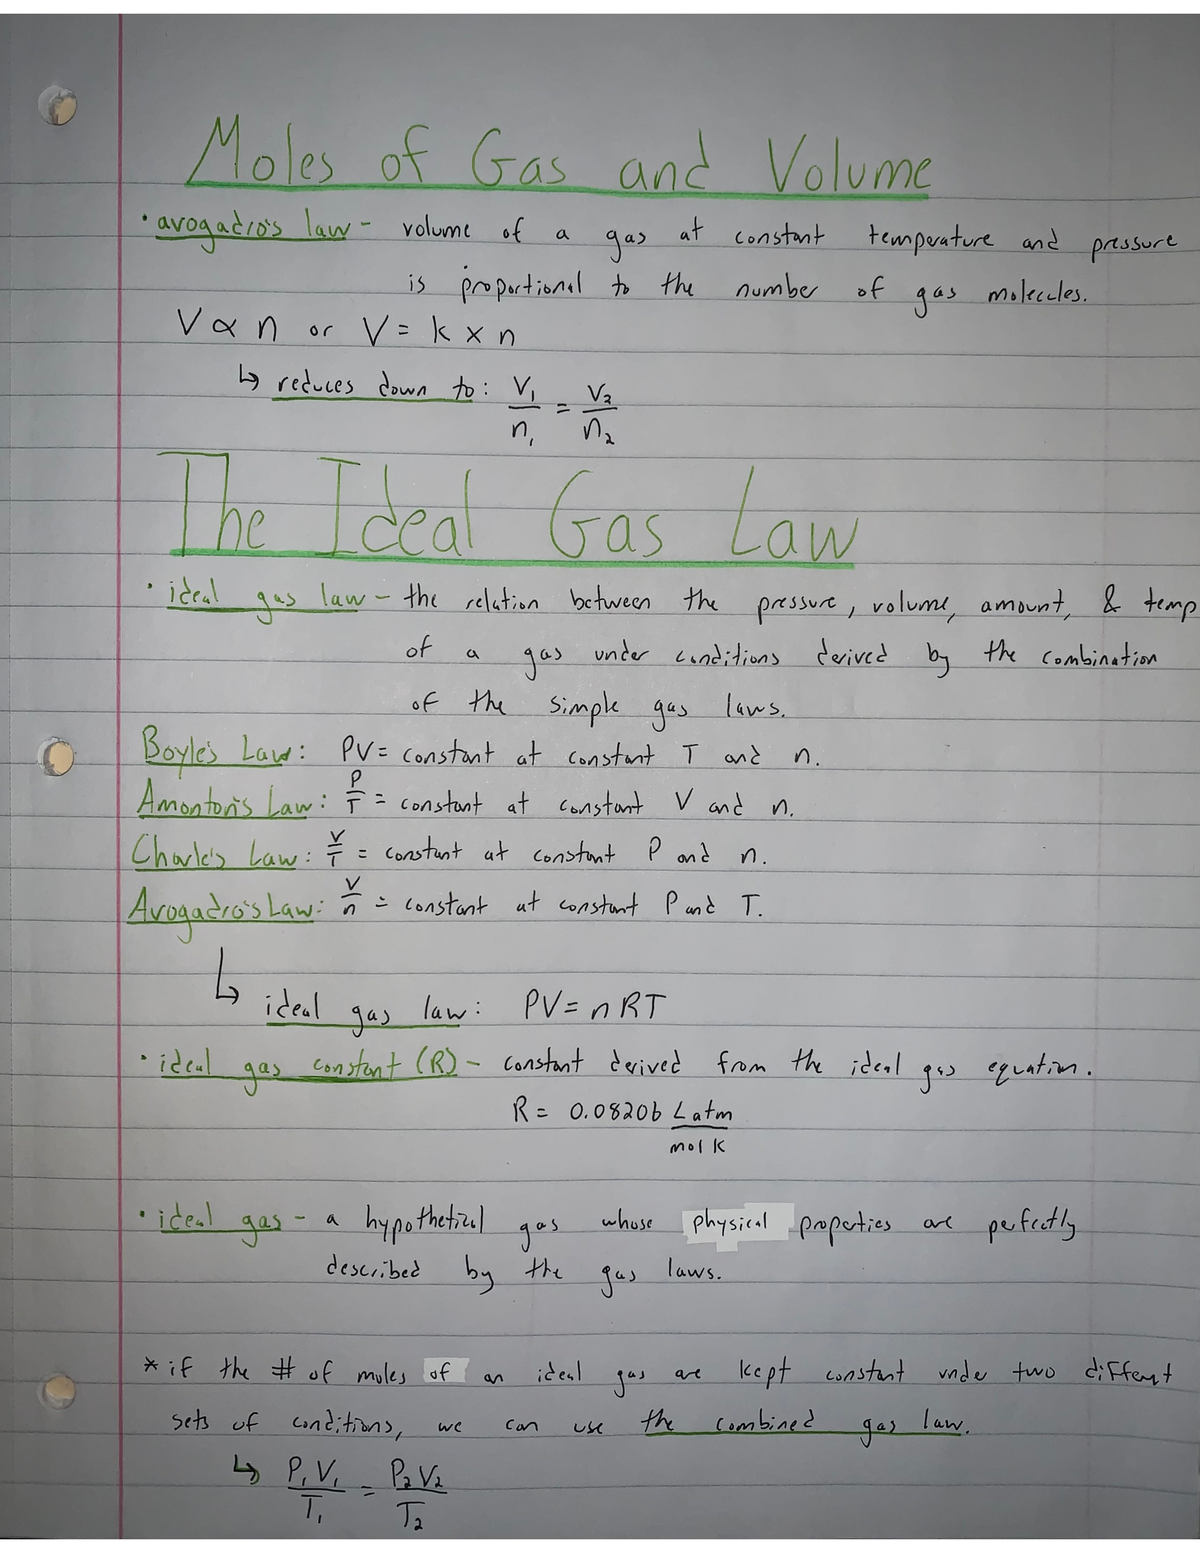 Moles of Gas and Volume
• avogadro's law - volume of a gas at constant temperature and pressure
is proportional to the number of gas molecules.
V ∝ n or V = k × n
↳ reduces down to: V₁/n₁ = V₂/n₂
The Ideal Gas Law
• ideal gas law - the relation between the pressure, volume, amount, & temp
of a gas under conditions derived by the combination
of the simple gas laws.
Boyle's Law: PV = constant at constant T and n.
Amonton's Law: P/T = constant at constant V and n.
Charle's Law: V/T = constant at constant P and n.
Avogadro's Law: V/n = constant at constant P and T.
↳ ideal gas law: PV = nRT
• ideal gas constant (R) - constant derived from the ideal gas equation.
R = 0.08206 L atm / mol K
• ideal gas - a hypothetical gas whose physical properties are perfectly
described by the gas laws.
* if the # of moles of an ideal gas are kept constant under two different
sets of conditions, we can use the combined gas law.
↳ P₁V₁/T₁ = P₂V₂/T₂